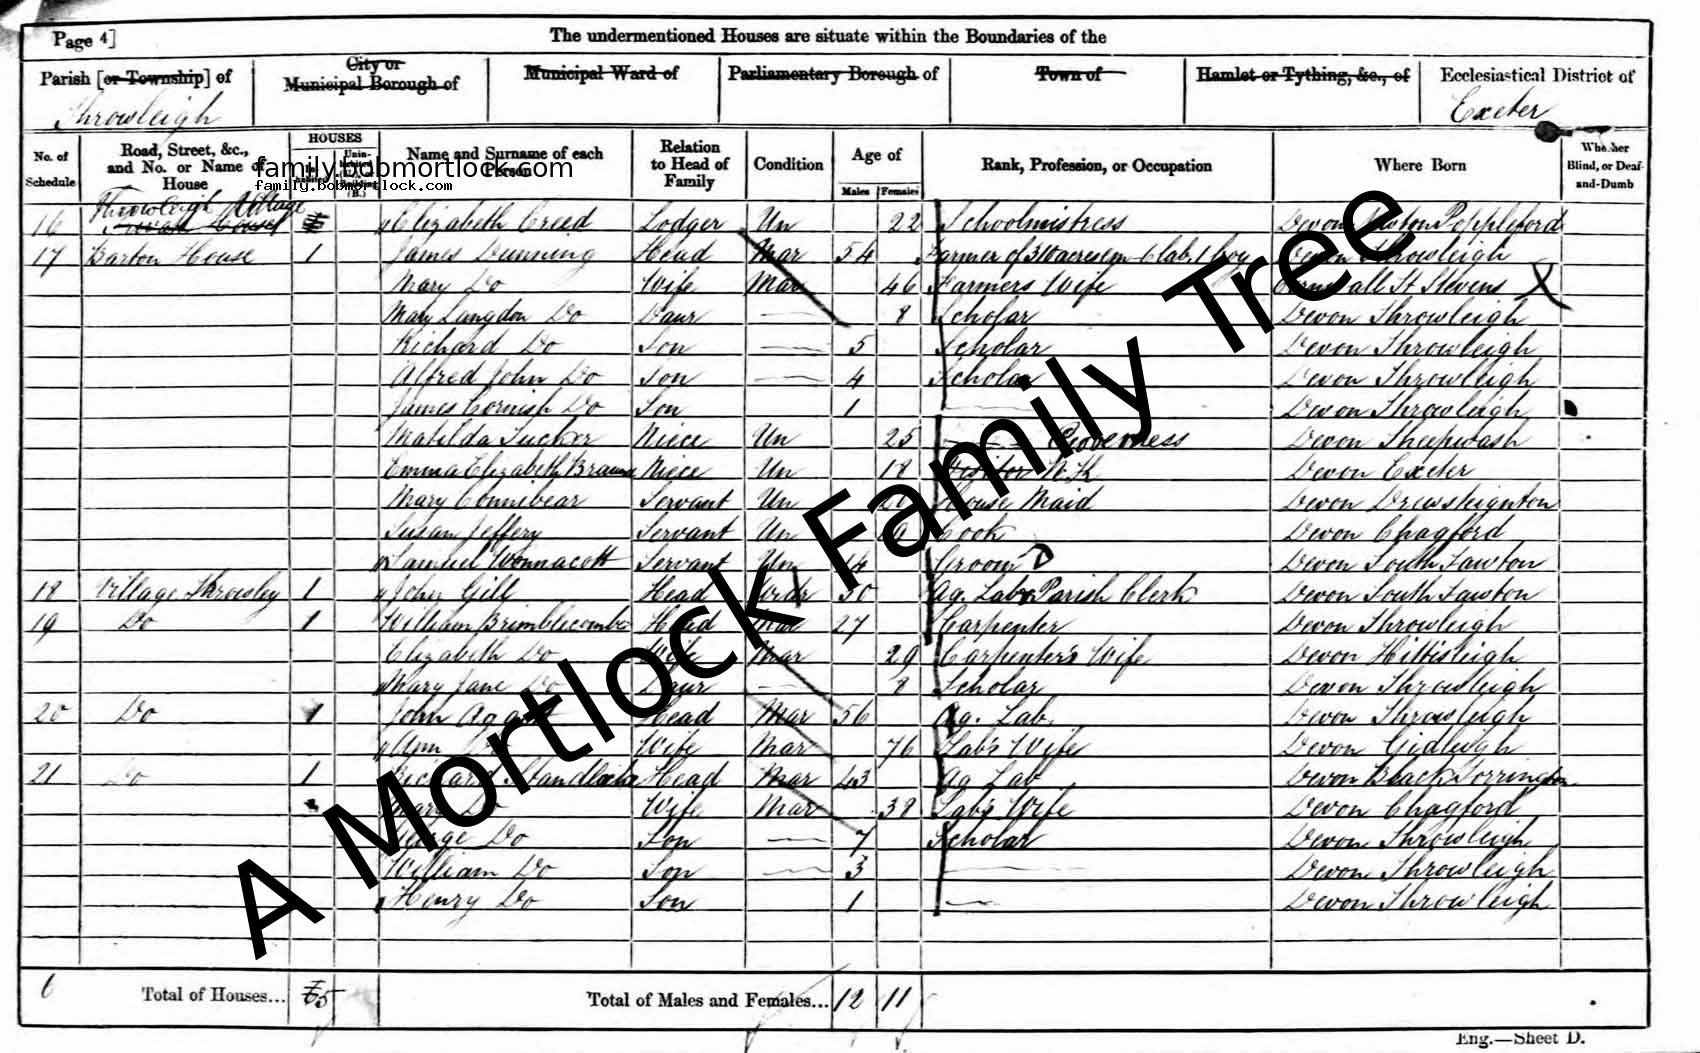 Page 4]
The undermentioned Houses are situate within the Boundaries of the
Parish [or Township] of
City or
Municipal Borough of
Municipal Ward of
Parliamentary Borough of
Town of
Hamlet or Tything, &c., of
Ecclesiastical District of
Throwleigh
Exeter
No. of Schedule
Road, Street, &c., and No. or Name of House
HOUSES
Name and Surname of each Person
Relation to Head of Family
Condition
Age of
Males Females
Rank, Profession, or Occupation
Where Born
Whether Blind, or Deaf-and-Dumb
family.bobmortlock.com
family.bobmortlock.com
Throwleigh Village
16 Elizabeth Creed Lodger Un 22 Schoolmistress Devon Poppleford
17 Barton House 1 James Dunning Head Mar 54 Farmer of 310 acres 6 lab, 1 boy Devon Throwleigh
Mary Do Wife Mar 46 Farmers Wife Cornwall St Stevens
Mary Langdon Do Daur 8 Scholar Devon Throwleigh
Richard Do Son 5 Scholar Devon Throwleigh
Alfred John Do Son 4 Scholar Devon Throwleigh
James Cornish Do Son 1 Devon Throwleigh
Matilda Tucker Niece Un 25 Governess Devon Sheepwash
Emma Elizabeth Niece Un 18 Visitor N.K Devon Exeter
Mary Connibear Servant Un House Maid Devon Drewsteignton
Susan Jeffery Servant Un Cook Devon Chagford
Samuel Wonnacott Servant Un 14 Groom Devon South Tawton
18 Village Throwley 1 John Gill Head Wdr 50 Ag. Lab Parish Clerk Devon South Tawton
19 Do 1 William Brimblecombe Head Mar 27 Carpenter Devon Throwleigh
Elizabeth Do Wife Mar 29 Carpenter's Wife Devon Hittisleigh
Mary Jane Do Daur 8 Scholar Devon Throwleigh
20 Do 1 John Head Mar 56 Ag. Lab. Devon Throwleigh
Ann Do Wife Mar 76 Lab's Wife Devon Gidleigh
21 Do 1 Richard Head Mar 43 Ag Lab Devon Black Torrington
Mary Do Wife Mar 38 Lab's Wife Devon Chagford
George Do Son 7 Scholar Devon Throwleigh
William Do Son 3 Devon Throwleigh
Henry Do Son 1 Devon Throwleigh
Total of Houses... 5
Total of Males and Females... 12 11
Eng.—Sheet D.
A Mortlock Family Tree